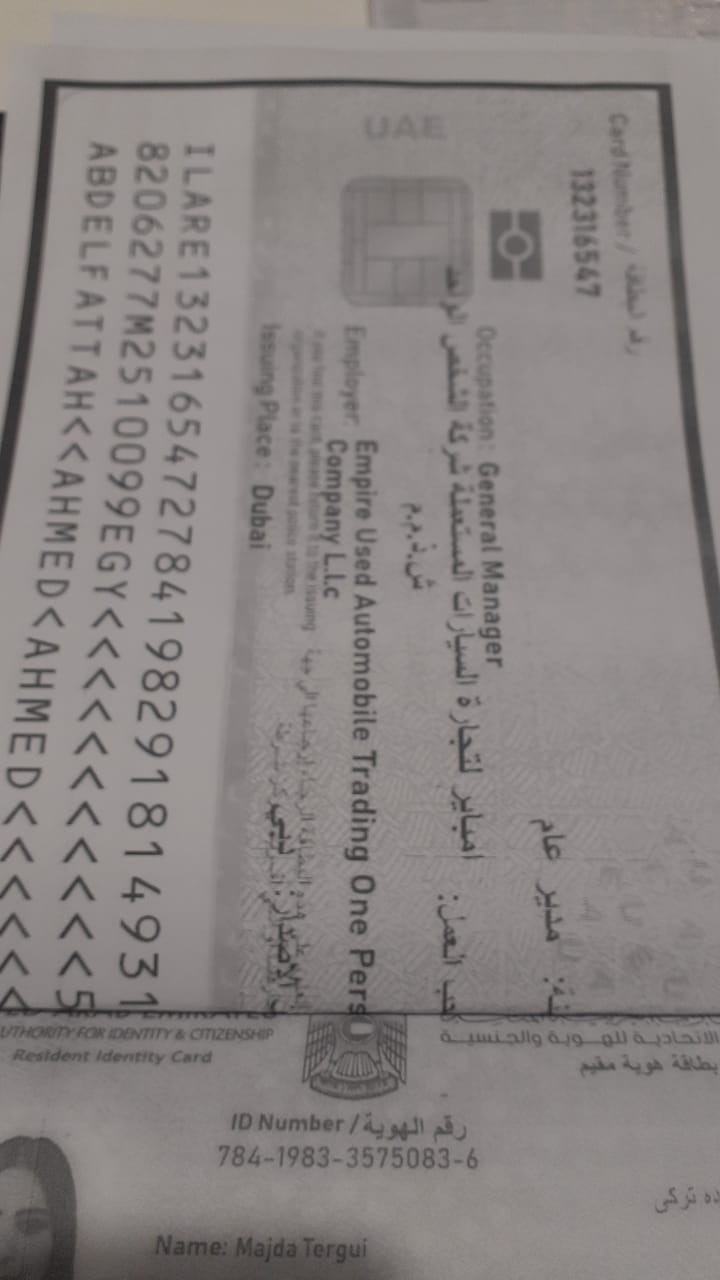 Card Number / رقم البطاقة
132316547
مدير عام
Occupation: General Manager
امباير لتجارة السيارات المستعملة شركة الشخص الواحد
ش.ذ.م.م
Employer: Empire Used Automobile Trading One Pers
Company L.L.c
If you find this card, please return it to the issuing
organization or to the nearest police station.
Issuing Place: Dubai
الاصدار: دبي
UAE
ILARE1323165472784198291814931
8206277M2510099EGY<<<<<<<<<<<5
ABDELFATTAH<<AHMED<AHMED<<<<<<
الاتحادية للهوية والجنسية
UTHORITY FOR IDENTITY & CITIZENSHIP
بطاقة هوية مقيم
Resident Identity Card
ID Number / رقم الهوية
784-1983-3575083-6
تركي
Name: Majda Tergui